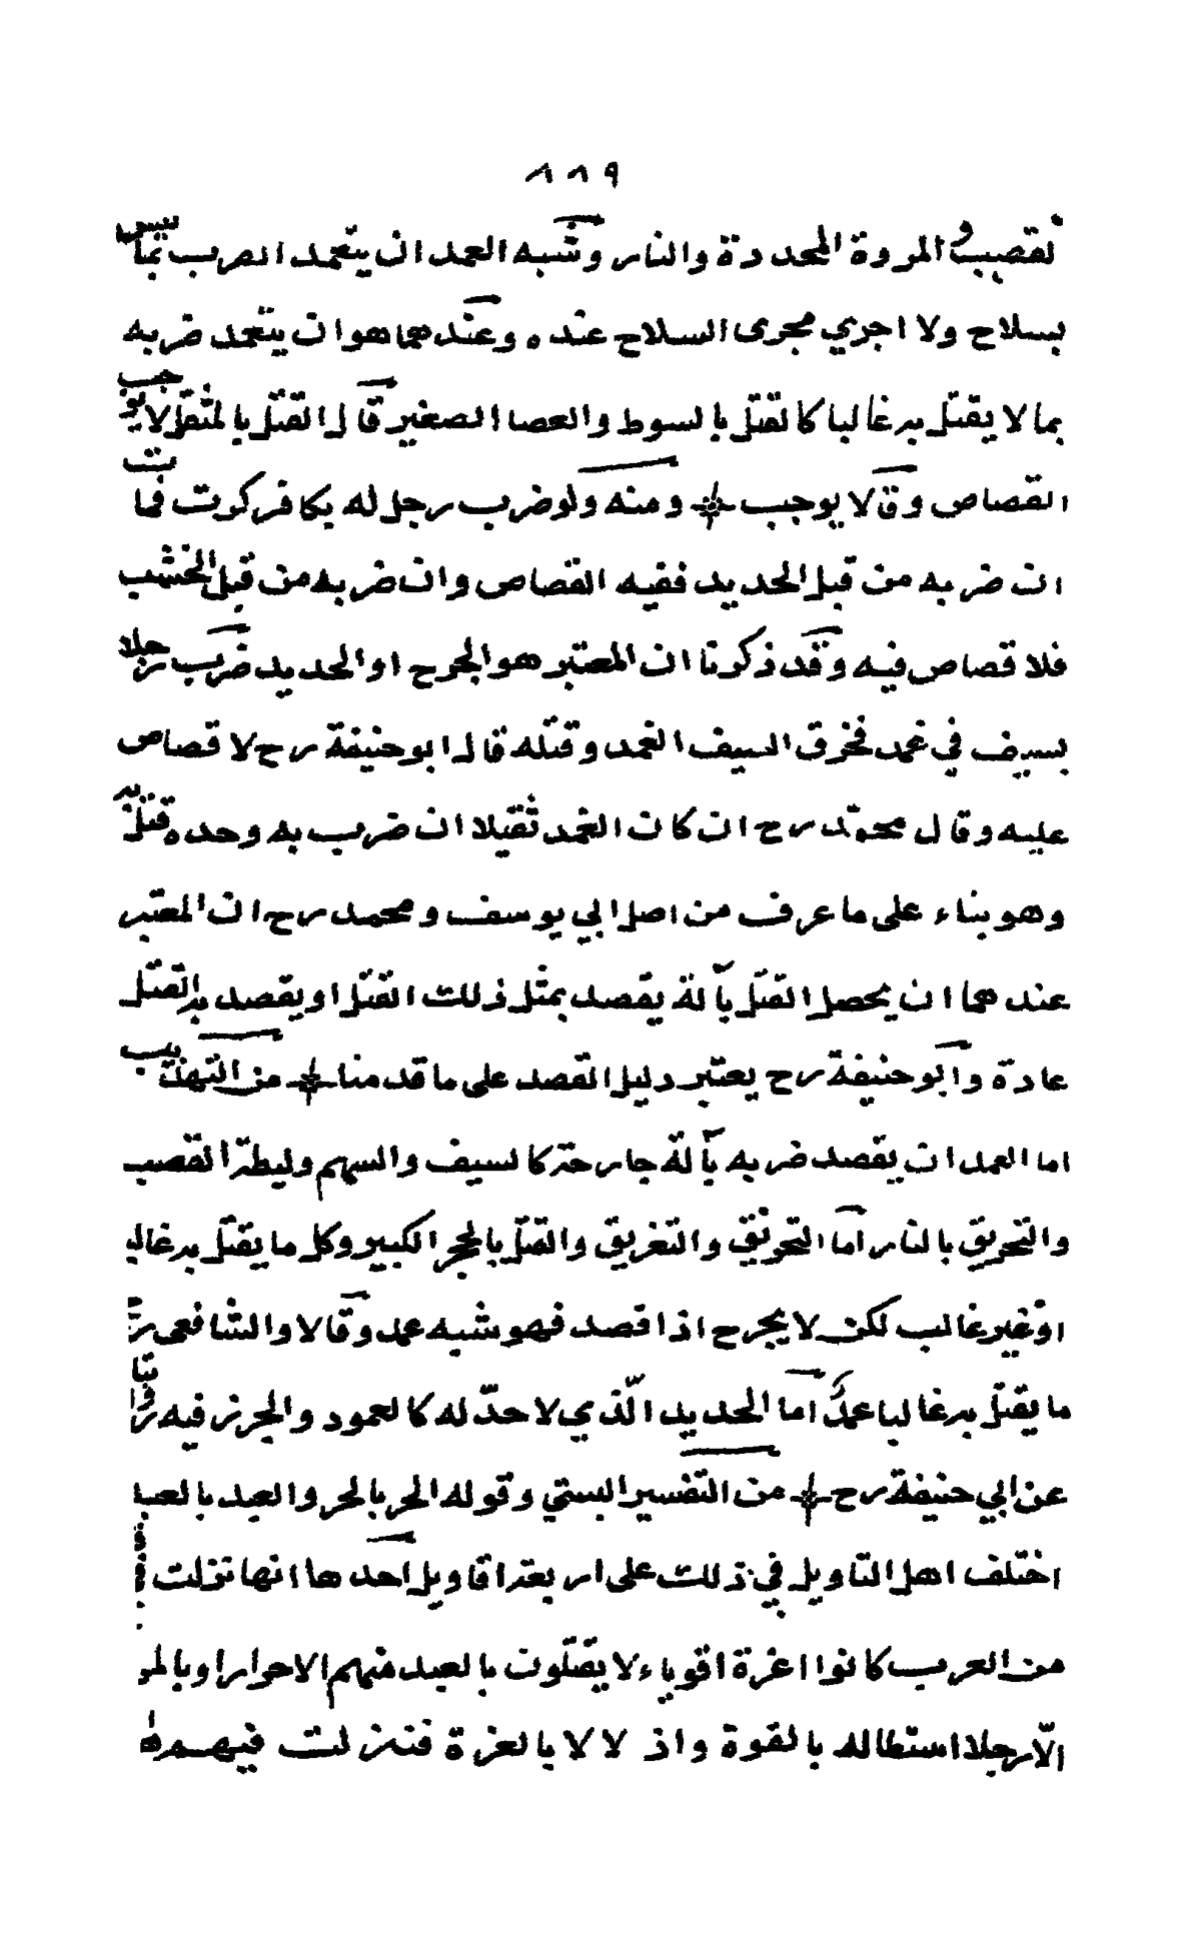 ٨٨٩
لقصب والمروة المحددة والنار وشبه العمد ان يتعمد الضرب بما ليس
بسلاح ولا اجري مجرى السلاح عنده وعندهما هو ان يتعمد ضربه
بما لا يقتل به غالبا كالقتل بالسوط والعصا الصغير قال القتل بالمثقل لا يوجب
القصاص وق لا يوجب ومنه ولو ضرب رجل له بكافر كوت فمات
ان ضربه من قبل الحديد ففيه القصاص وان ضربه من قبل الخشب
فلا قصاص فيه وقد ذكرنا ان المعتبر هو الجرح او الحديد ضرب رجلا
بسيف في غمد فخرق السيف الغمد وقتله قال ابو حنيفة رح لا قصاص
عليه وقال محمد رح ان كان الغمد ثقيلا ان ضرب به وحده قتل به
وهو بناء على ما عرف من اصل ابي يوسف ومحمد رح ان المعتبر
عندهما ان يحصل القتل بآلة يقصد بمثل ذلك القتل او يقصد به القتل
عادة وابو حنيفة رح يعتبر دليل القصد على ما قدمنا من التهذيب
اما العمد ان يقصد ضربه بآلة جارحة كالسيف والسهم وليطة القصب
والتحريق بالنار اما التخويق والتغريق والقتل بالحجر الكبير وكل ما يقتل به غالب
او غير غالب لكن لا يجرح اذا قصد فهو شبه عمد وقالا والشافعي رح
ما يقتل به غالبا عمد اما الحديد الّذي لا حدّ له كالعمود والجرز فيه روايتا
عن ابي حنيفة رح من التفسير البستي وقوله الحر بالحر والعبد بالعبد
اختلف اهل التاويل في ذلك على اربعة اقاويل احدها انها نزلت في
من العرب كانوا اعزة اقوياء لا يقتلون بالعبد منهم الا حرارا وبالمر
الّا رجلا استطاله بالقوة واذ لالا بالعزة فنزلت فيهم